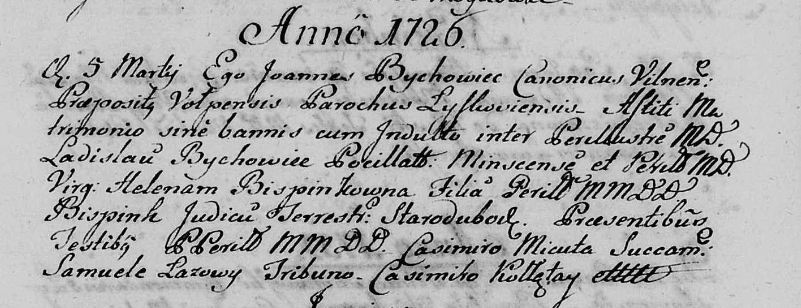 Anno 1726.
D. 5 Martij Ego Joannes Bychowiec Canonicus Vilnen:
Præposit9 Vołpensis Parochus Lyskoviensis Astiti Ma
trimonio sine bannis cum Indulto inter Perillustre MD.
Ladislau Bychowiec Pocillatt: Minscense et Perill MD.
Virg: Helenam Bispinkowna Filia Perill MMDD
Bispink Judicu Terrestr: Starodubo Præsentibus
Testib9 PPerill MM DD. Casimiro Micuta Succam:
Samuele Lazowy Tribuno. Casimiro Kołłątay